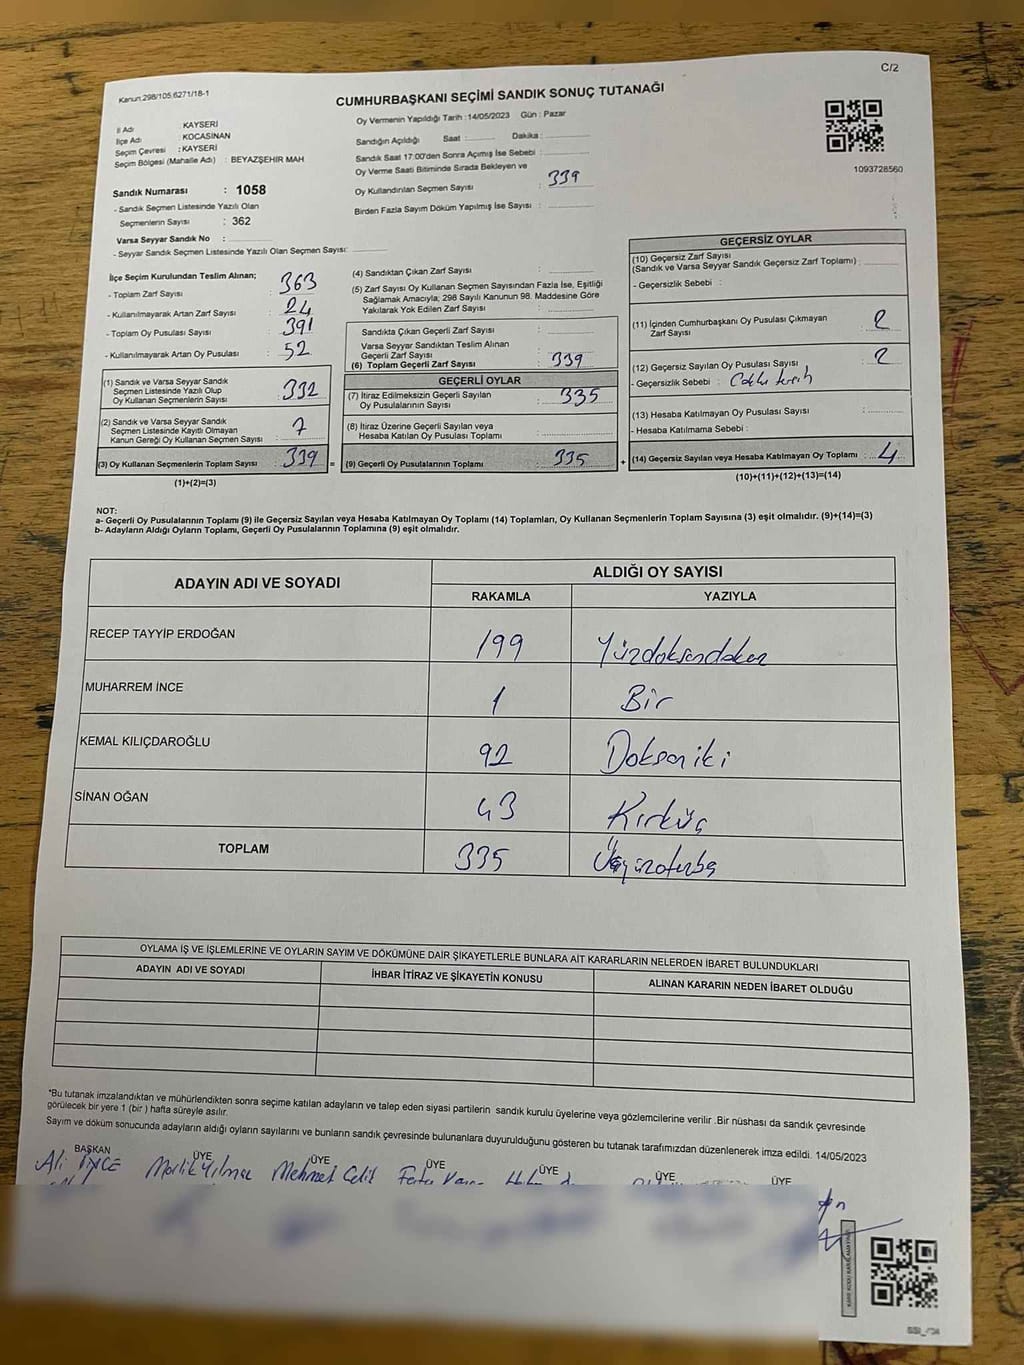 C/2
Kanun 298/105,6271/18-1
CUMHURBAŞKANI SEÇİMİ SANDIK SONUÇ TUTANAĞI
İl Adı : KAYSERİ
İlçe Adı : KOCASİNAN
Seçim Çevresi : KAYSERİ
Seçim Bölgesi (Mahalle Adı) : BEYAZŞEHİR MAH
Sandık Numarası : 1058
- Sandık Seçmen Listesinde Yazılı Olan
Seçmenlerin Sayısı : 362
Varsa Seyyar Sandık No :
- Seyyar Sandık Seçmen Listesinde Yazılı Olan Seçmen Sayısı:
Oy Vermenin Yapıldığı Tarih :14/05/2023 Gün : Pazar
Sandığın Açıldığı Saat : Dakika :
Sandık Saat 17:00'den Sonra Açımış İse Sebebi :
Oy Verme Saati Bitiminde Sırada Bekleyen ve
Oy Kullandırılan Seçmen Sayısı : 339
Birden Fazla Sayım Döküm Yapılmış İse Sayısı :
1093728560
İlçe Seçim Kurulundan Teslim Alınan;
- Toplam Zarf Sayısı : 363
- Kullanılmayarak Artan Zarf Sayısı : 24
- Toplam Oy Pusulası Sayısı : 391
- Kullanılmayarak Artan Oy Pusulası : 52
(1) Sandık ve Varsa Seyyar Sandık
Seçmen Listesinde Yazılı Olup
Oy Kullanan Seçmenlerin Sayısı : 332
(2) Sandık ve Varsa Seyyar Sandık
Seçmen Listesinde Kayıtlı Olmayan
Kanun Gereği Oy Kullanan Seçmen Sayısı : 7
(3) Oy Kullanan Seçmenlerin Toplam Sayısı : 339
(1)+(2)=(3)
(4) Sandıktan Çıkan Zarf Sayısı :
(5) Zarf Sayısı Oy Kullanan Seçmen Sayısından Fazla İse, Eşitliği
Sağlamak Amacıyla, 298 Sayılı Kanunun 98. Maddesine Göre
Yakılarak Yok Edilen Zarf Sayısı :
Sandıkta Çıkan Geçerli Zarf Sayısı :
Varsa Seyyar Sandıktan Teslim Alınan
Geçerli Zarf Sayısı :
(6) Toplam Geçerli Zarf Sayısı : 339
GEÇERLİ OYLAR
(7) İtiraz Edilmeksizin Geçerli Sayılan
Oy Pusulalarının Sayısı : 335
(8) İtiraz Üzerine Geçerli Sayılan veya
Hesaba Katılan Oy Pusulası Toplamı :
= (9) Geçerli Oy Pusulalarının Toplamı : 335
GEÇERSİZ OYLAR
(10) Geçersiz Zarf Sayısı
(Sandık ve Varsa Seyyar Sandık Geçersiz Zarf Toplamı) :
- Geçersizlik Sebebi :
(11) İçinden Cumhurbaşkanı Oy Pusulası Çıkmayan
Zarf Sayısı : 2
(12) Geçersiz Sayılan Oy Pusulası Sayısı : 2
- Geçersizlik Sebebi :
(13) Hesaba Katılmayan Oy Pusulası Sayısı :
- Hesaba Katılmama Sebebi :
+ (14) Geçersiz Sayılan veya Hesaba Katılmayan Oy Toplamı : 4
(10)+(11)+(12)+(13)=(14)
NOT:
a- Geçerli Oy Pusulalarının Toplamı (9) ile Geçersiz Sayılan veya Hesaba Katılmayan Oy Toplamı (14) Toplamları, Oy Kullanan Seçmenlerin Toplam Sayısına (3) eşit olmalıdır. (9)+(14)=(3)
b- Adayların Aldığı Oyların Toplamı, Geçerli Oy Pusulalarının Toplamına (9) eşit olmalıdır.
ADAYIN ADI VE SOYADI
ALDIĞI OY SAYISI
RAKAMLA YAZIYLA
RECEP TAYYİP ERDOĞAN 199
MUHARREM İNCE 1 Bir
KEMAL KILIÇDAROĞLU 92 Doksaniki
SİNAN OĞAN 43 Kırküç
TOPLAM 335
OYLAMA İŞ VE İŞLEMLERİNE VE OYLARIN SAYIM VE DÖKÜMÜNE DAİR ŞİKAYETLERLE BUNLARA AİT KARARLARIN NELERDEN İBARET BULUNDUKLARI
ADAYIN ADI VE SOYADI İHBAR İTİRAZ VE ŞİKAYETİN KONUSU ALINAN KARARIN NEDEN İBARET OLDUĞU
*Bu tutanak imzalandıktan ve mühürlendikten sonra seçime katılan adayların ve talep eden siyasi partilerin sandık kurulu üyelerine veya gözlemcilerine verilir .Bir nüshası da sandık çevresinde
görülecek bir yere 1 (bir ) hafta süreyle asılır.
Sayım ve döküm sonucunda adayların aldığı oyların sayılarını ve bunların sandık çevresinde bulunanlara duyurulduğunu gösteren bu tutanak tarafımızdan düzenlenerek imza edildi. 14/05/2023
BAŞKAN ÜYE ÜYE ÜYE ÜYE ÜYE ÜYE
Ali İNCE Melik Yılmaz Mehmet Çelik